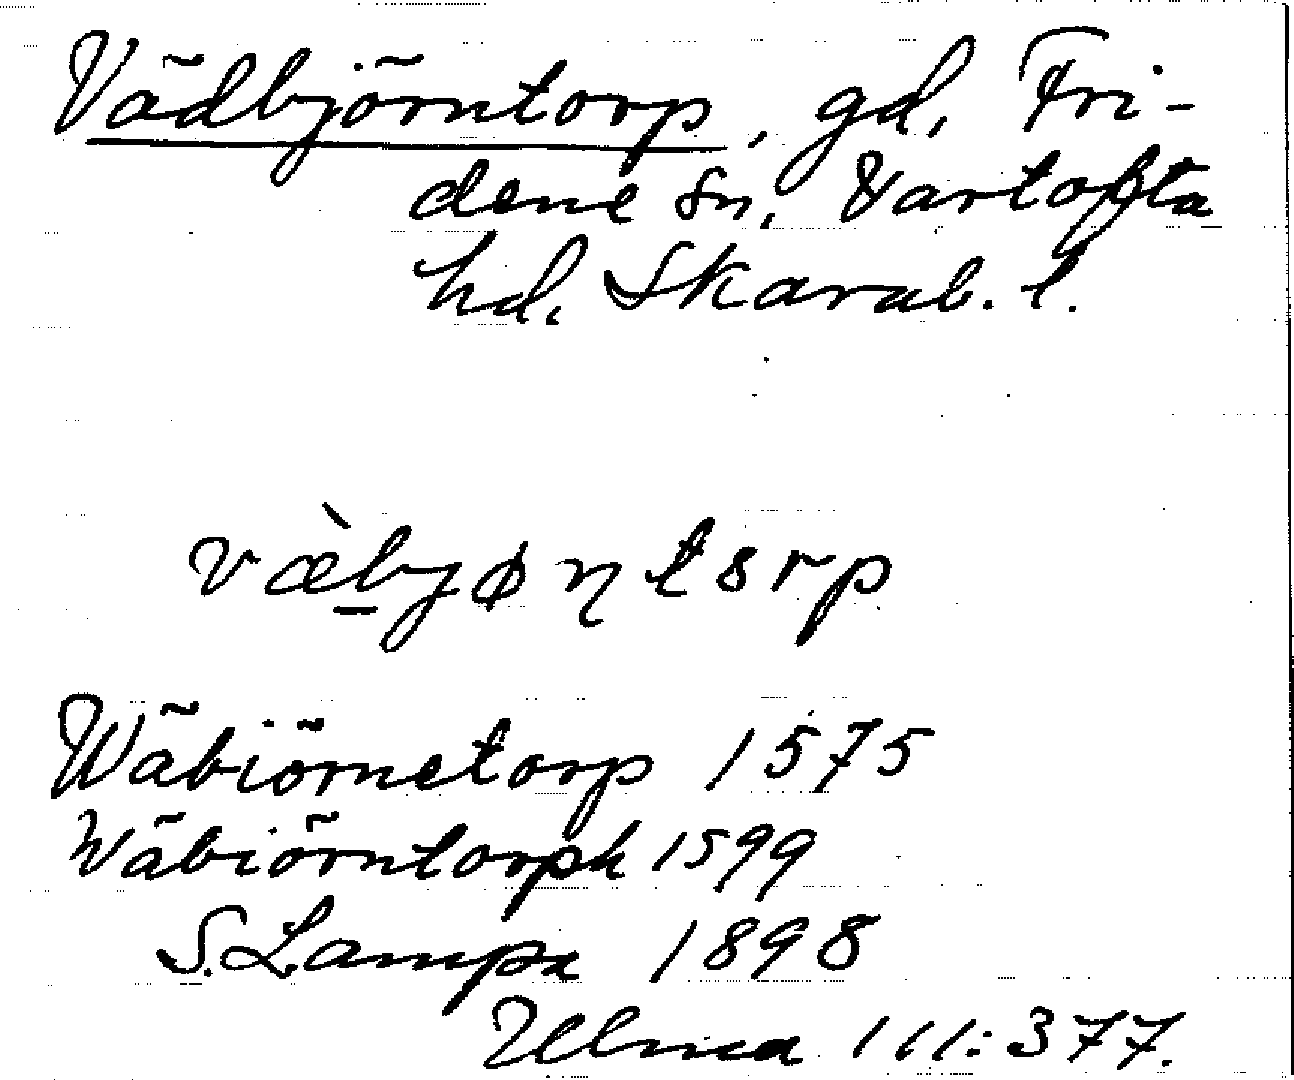 Vädbjörntorp, gd, Fri-
dene sn, Vartofta
hd, Skarab. l.
væ̀bjøɳtorp
Wäbiörnetorp 1575
Wäbiörntorph 1599
S. Lampa 1898
Ulma 111:377.